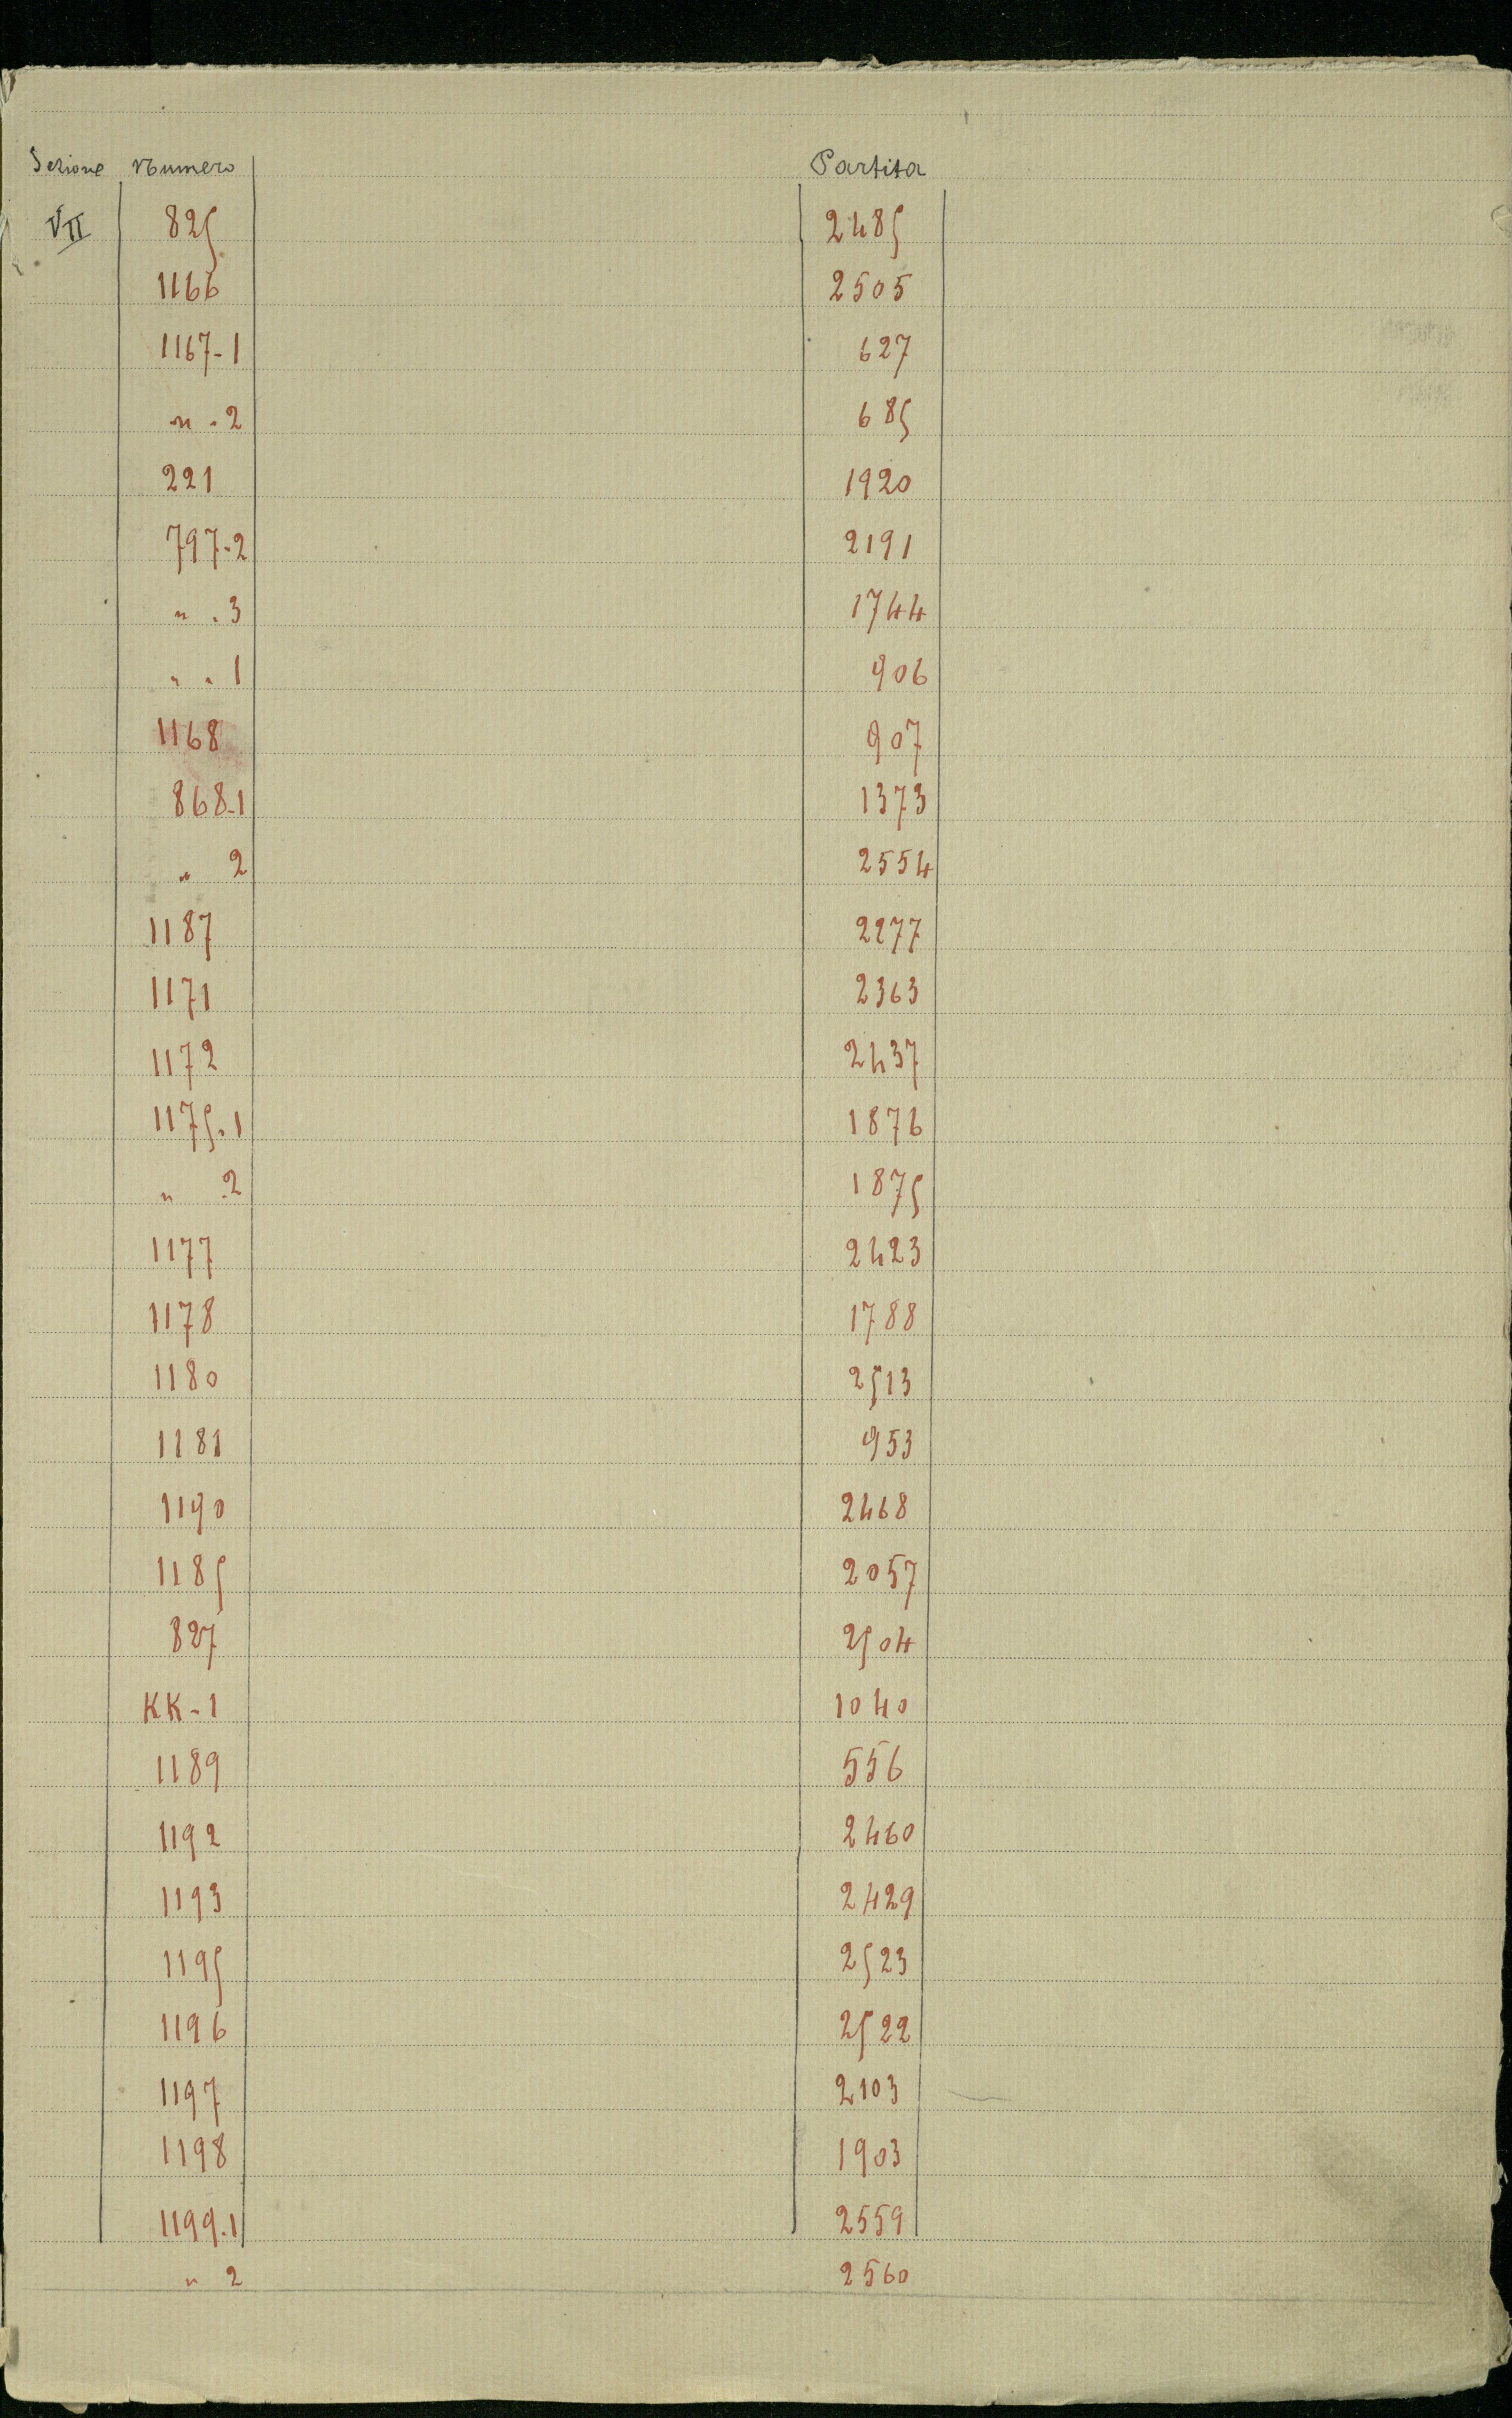 Sezione Numero Partita
VII 825 2485
1166 2505
1167-1 627
" - 2 685
221 1920
797-2 2191
" - 3 1744
" " 1 906
1168 907
868-1 1373
" 2 2554
1187 2277
1171 2363
1172 2437
1175-1 1876
" -2 1875
1177 2423
1178 1788
1180 2513
1181 953
1190 2468
1185 2057
827 2504
KK-1 1040
1189 556
1192 2460
1193 2429
1195 2523
1196 2522
1197 2103
1198 1903
1199-1 2559
" 2 2560